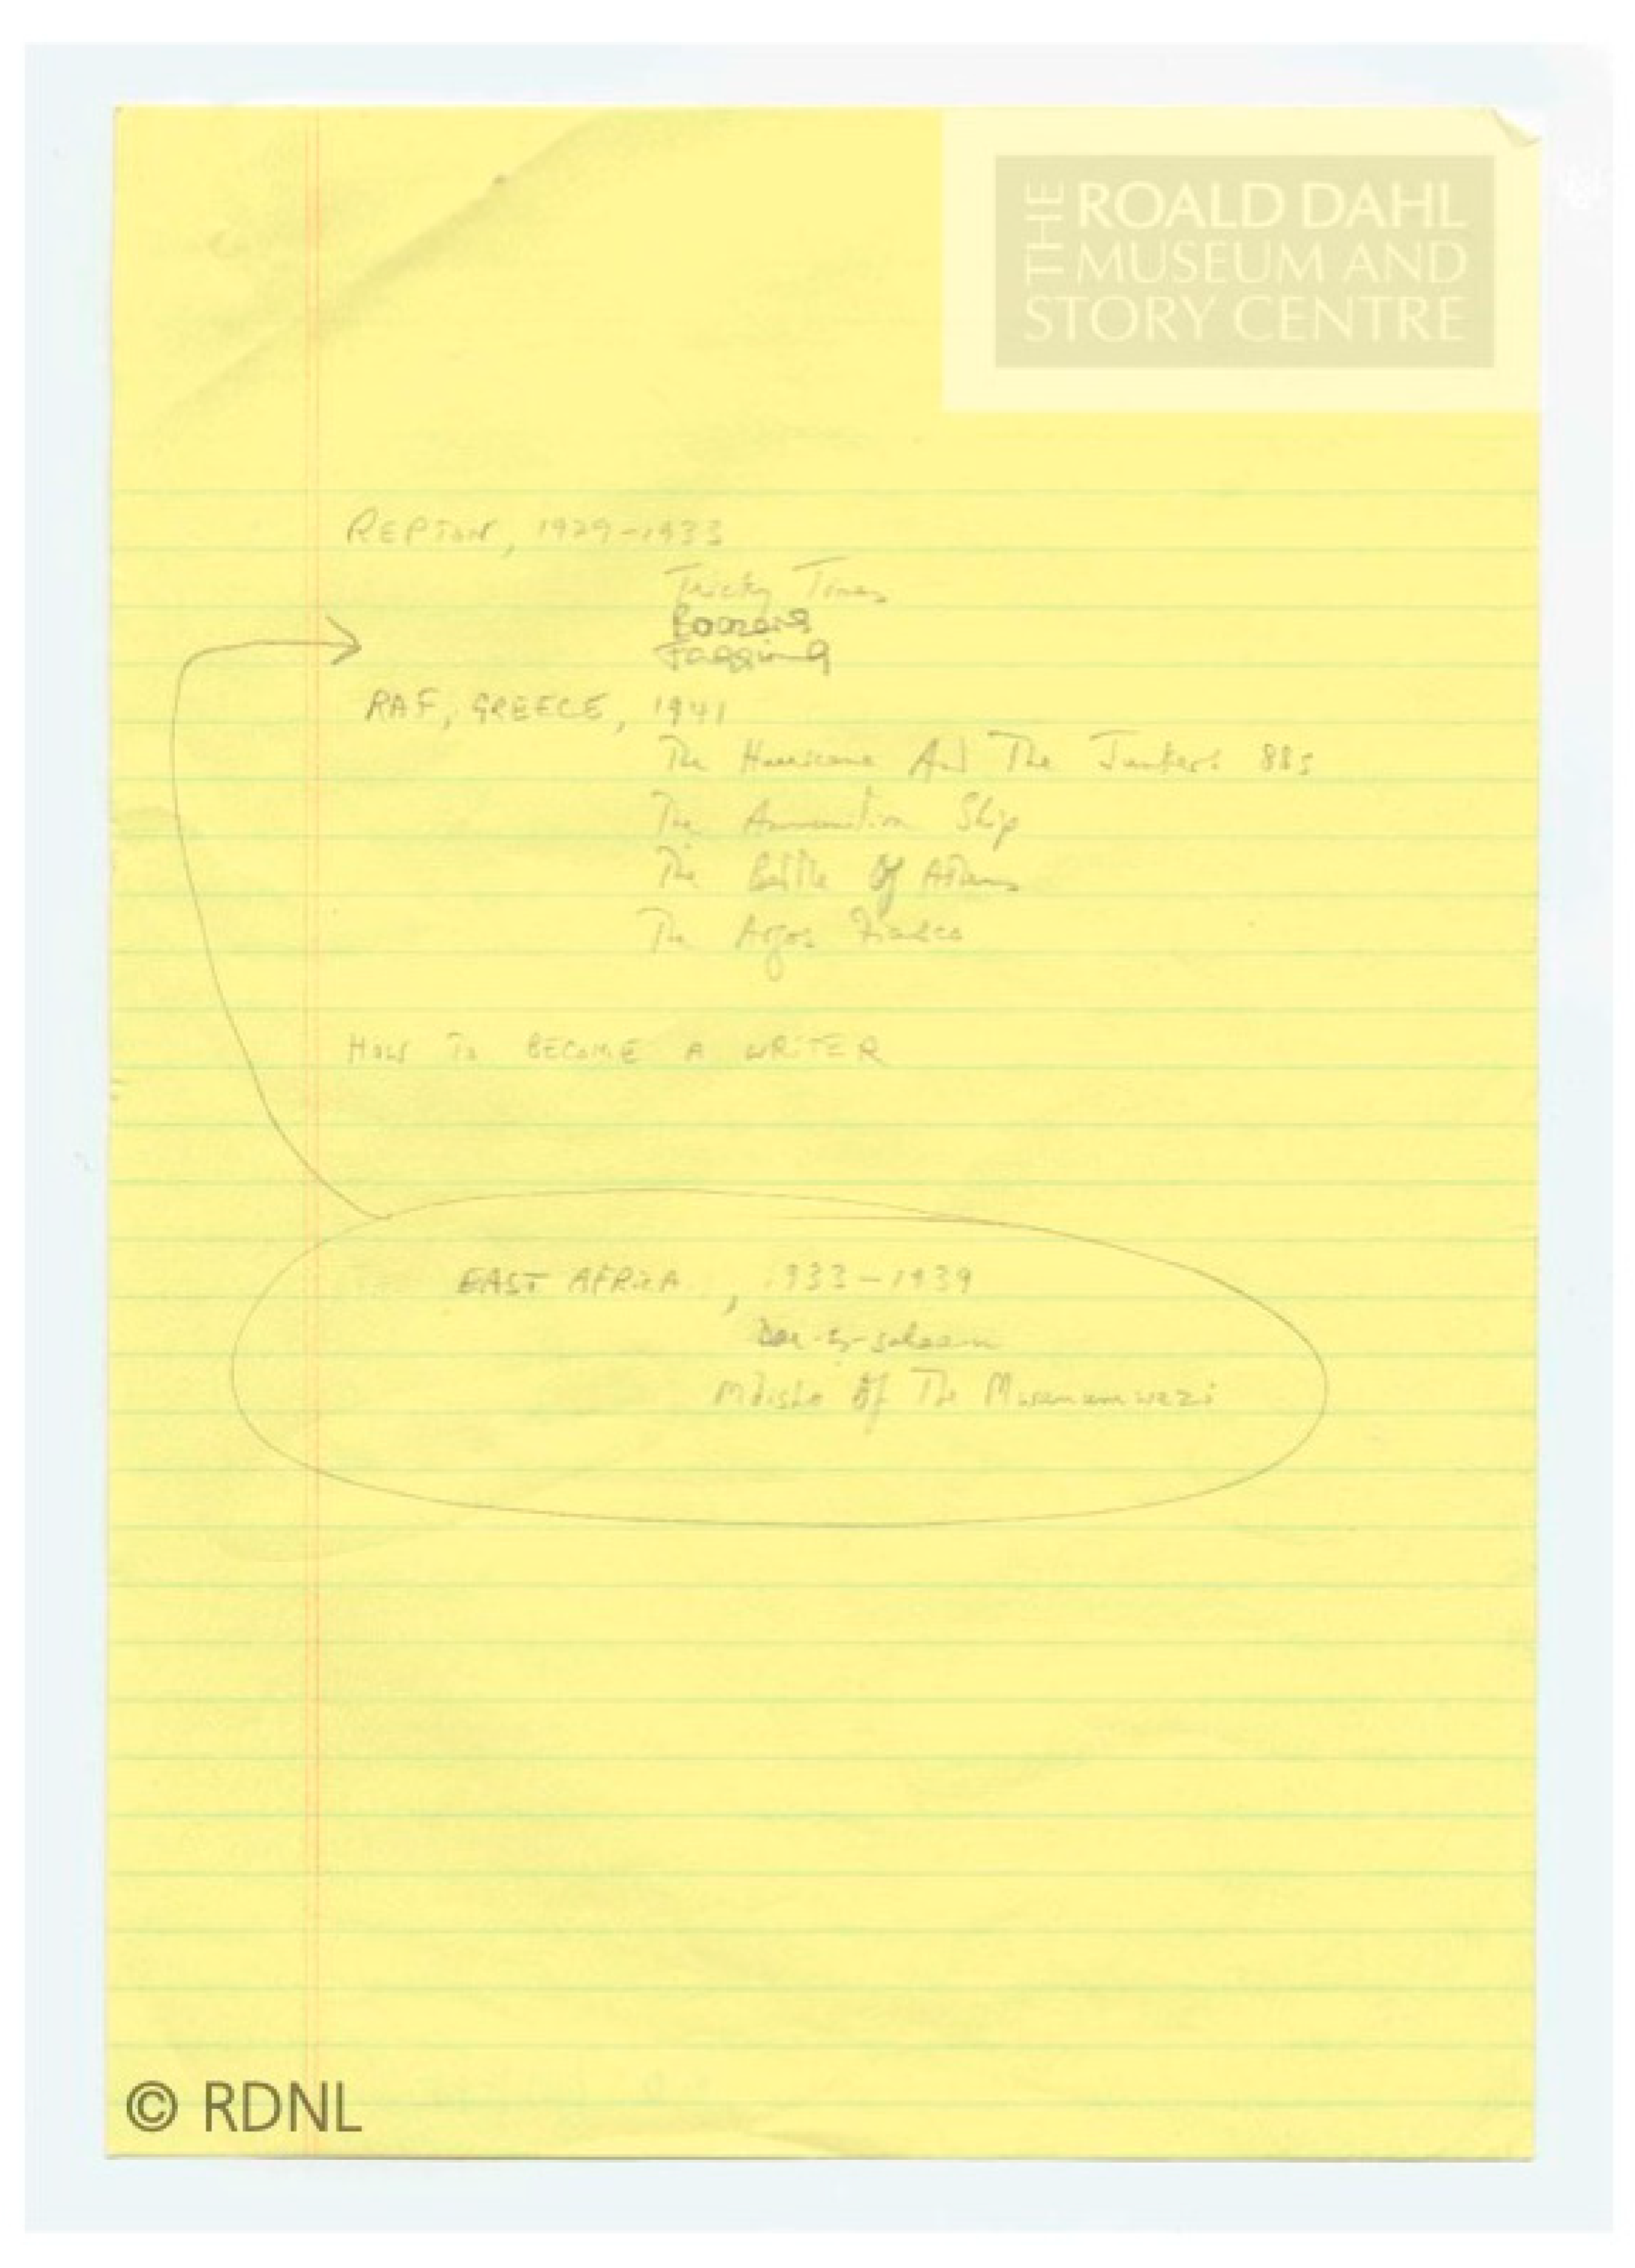 THE ROALD DAHL
MUSEUM AND
STORY CENTRE
REPTON, 1929-1933
Tricky Times
Boazers
Fagging
RAF, GREECE, 1941
The Hurricane And The Junkers 88s
The Ammunition Ship
The Battle Of Athens
The Argos Fiasco
HOW TO BECOME A WRITER
EAST AFRICA, 1933-1939
Dar-es-salaam
Mdisho Of The
© RDNL